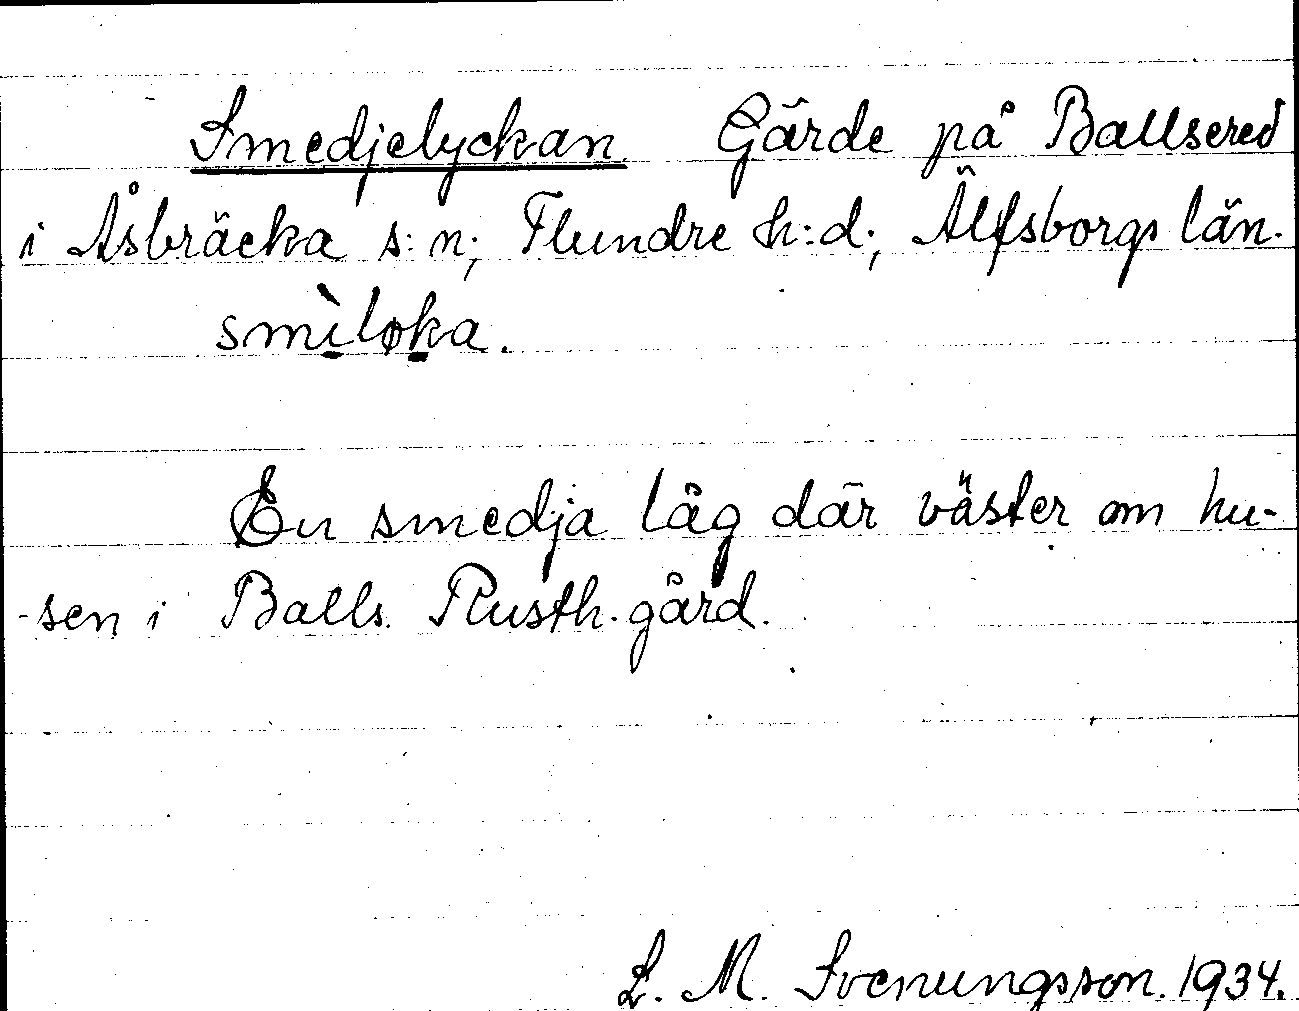 Smedjelyckan Gärde på Ballsered
i Åsbräcka s:n; Flundre h:d; Älfsborgs län.
smìløka.
En smedja låg där väster om hu-
-sen i Balls. Rusth. gård.
L. M. Svenungsson. 1934.